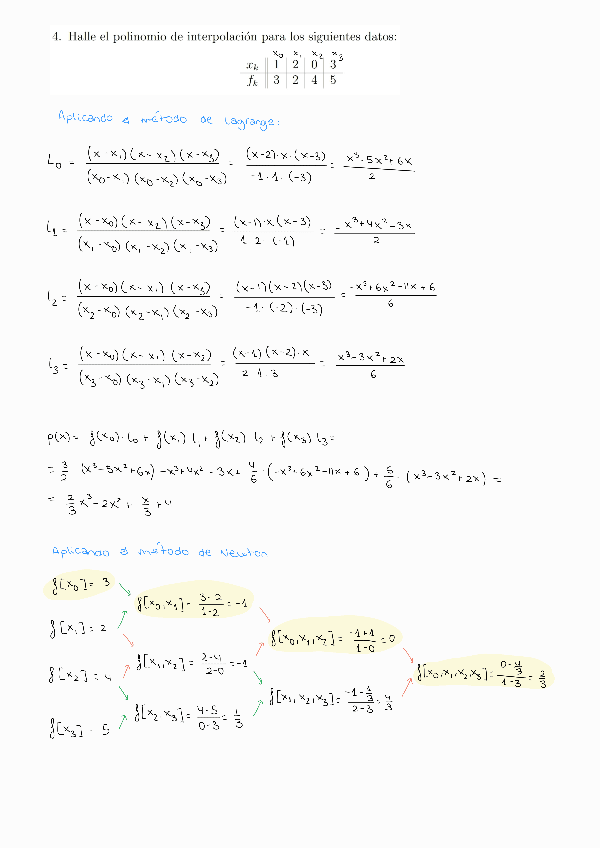 4. Halle el polinomio de interpolación para los siguientes datos:
x₀ x₁ x₂ x₃
xₖ 1 2 0 3
fₖ 3 2 4 5
Aplicando el método de Lagrange:
L₀ = (x-x₁)(x-x₂)(x-x₃) / (x₀-x₁)(x₀-x₂)(x₀-x₃) = (x-2)·x·(x-3) / -1·1·(-3) = x³-5x²+6x / 2
l₁ = (x-x₀)(x-x₂)(x-x₃) / (x₁-x₀)(x₁-x₂)(x₁-x₃) = (x-1)·x(x-3) / 1·2·(-1) = -x³+4x²-3x / 2
l₂ = (x-x₀)(x-x₁)(x-x₃) / (x₂-x₀)(x₂-x₁)(x₂-x₃) = (x-1)(x-2)(x-3) / -1·(-2)·(-3) = -x³+6x²-11x+6 / 6
l₃ = (x-x₀)(x-x₁)(x-x₂) / (x₃-x₀)(x₃-x₁)(x₃-x₂) = (x-1)(x-2)·x / 2·1·3 = x³-3x²+2x / 6
p(x) = f(x₀)·l₀ + f(x₁) l₁ + f(x₂) l₂ + f(x₃) l₃ =
= 3/2 (x³-5x²+6x) -x³+4x²-3x + 4/6 ·(-x³+6x²-11x+6) + 5/6 ·(x³-3x²+2x) =
= 2/3 x³-2x²+ x/3 +4
Aplicando el método de Newton
f[x₀] = 3
f[x₀,x₁] = 3-2 / 1-2 = -1
f[x₁] = 2
f[x₀,x₁,x₂] = -1+1 / 1-0 = 0
f[x₁,x₂] = 2-4 / 2-0 = -1
f[x₀,x₁,x₂,x₃] = 0-4/3 / 1-3 = 2/3
f[x₂] = 4
f[x₁,x₂,x₃] = -1-1/3 / 2-3 = 4/3
f[x₂,x₃] = 4-5 / 0-3 = 1/3
f[x₃] = 5